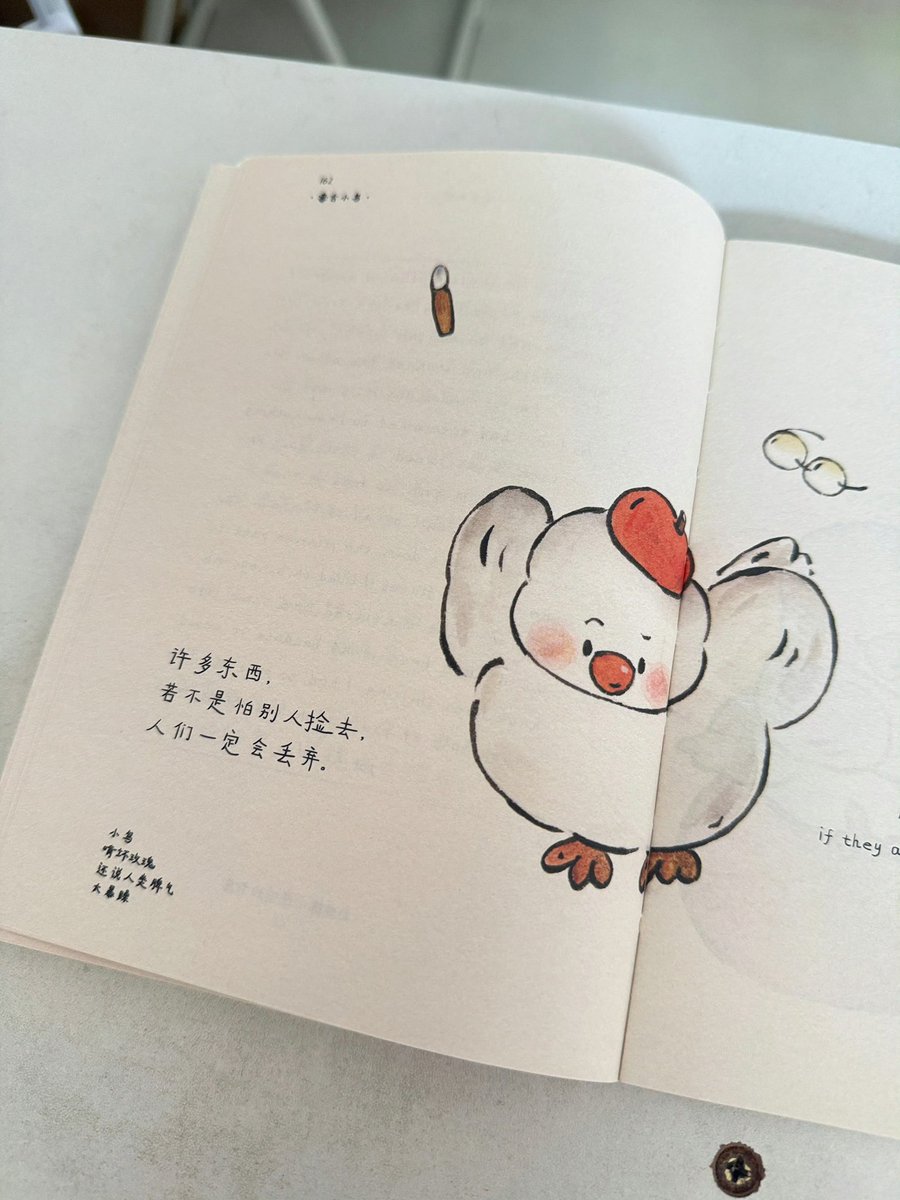 162
许多东西，
若不是怕别人捡去，
人们一定会丢弃。
小鸟
啃坏玫瑰
还说人类脾气
太暴躁
if they a